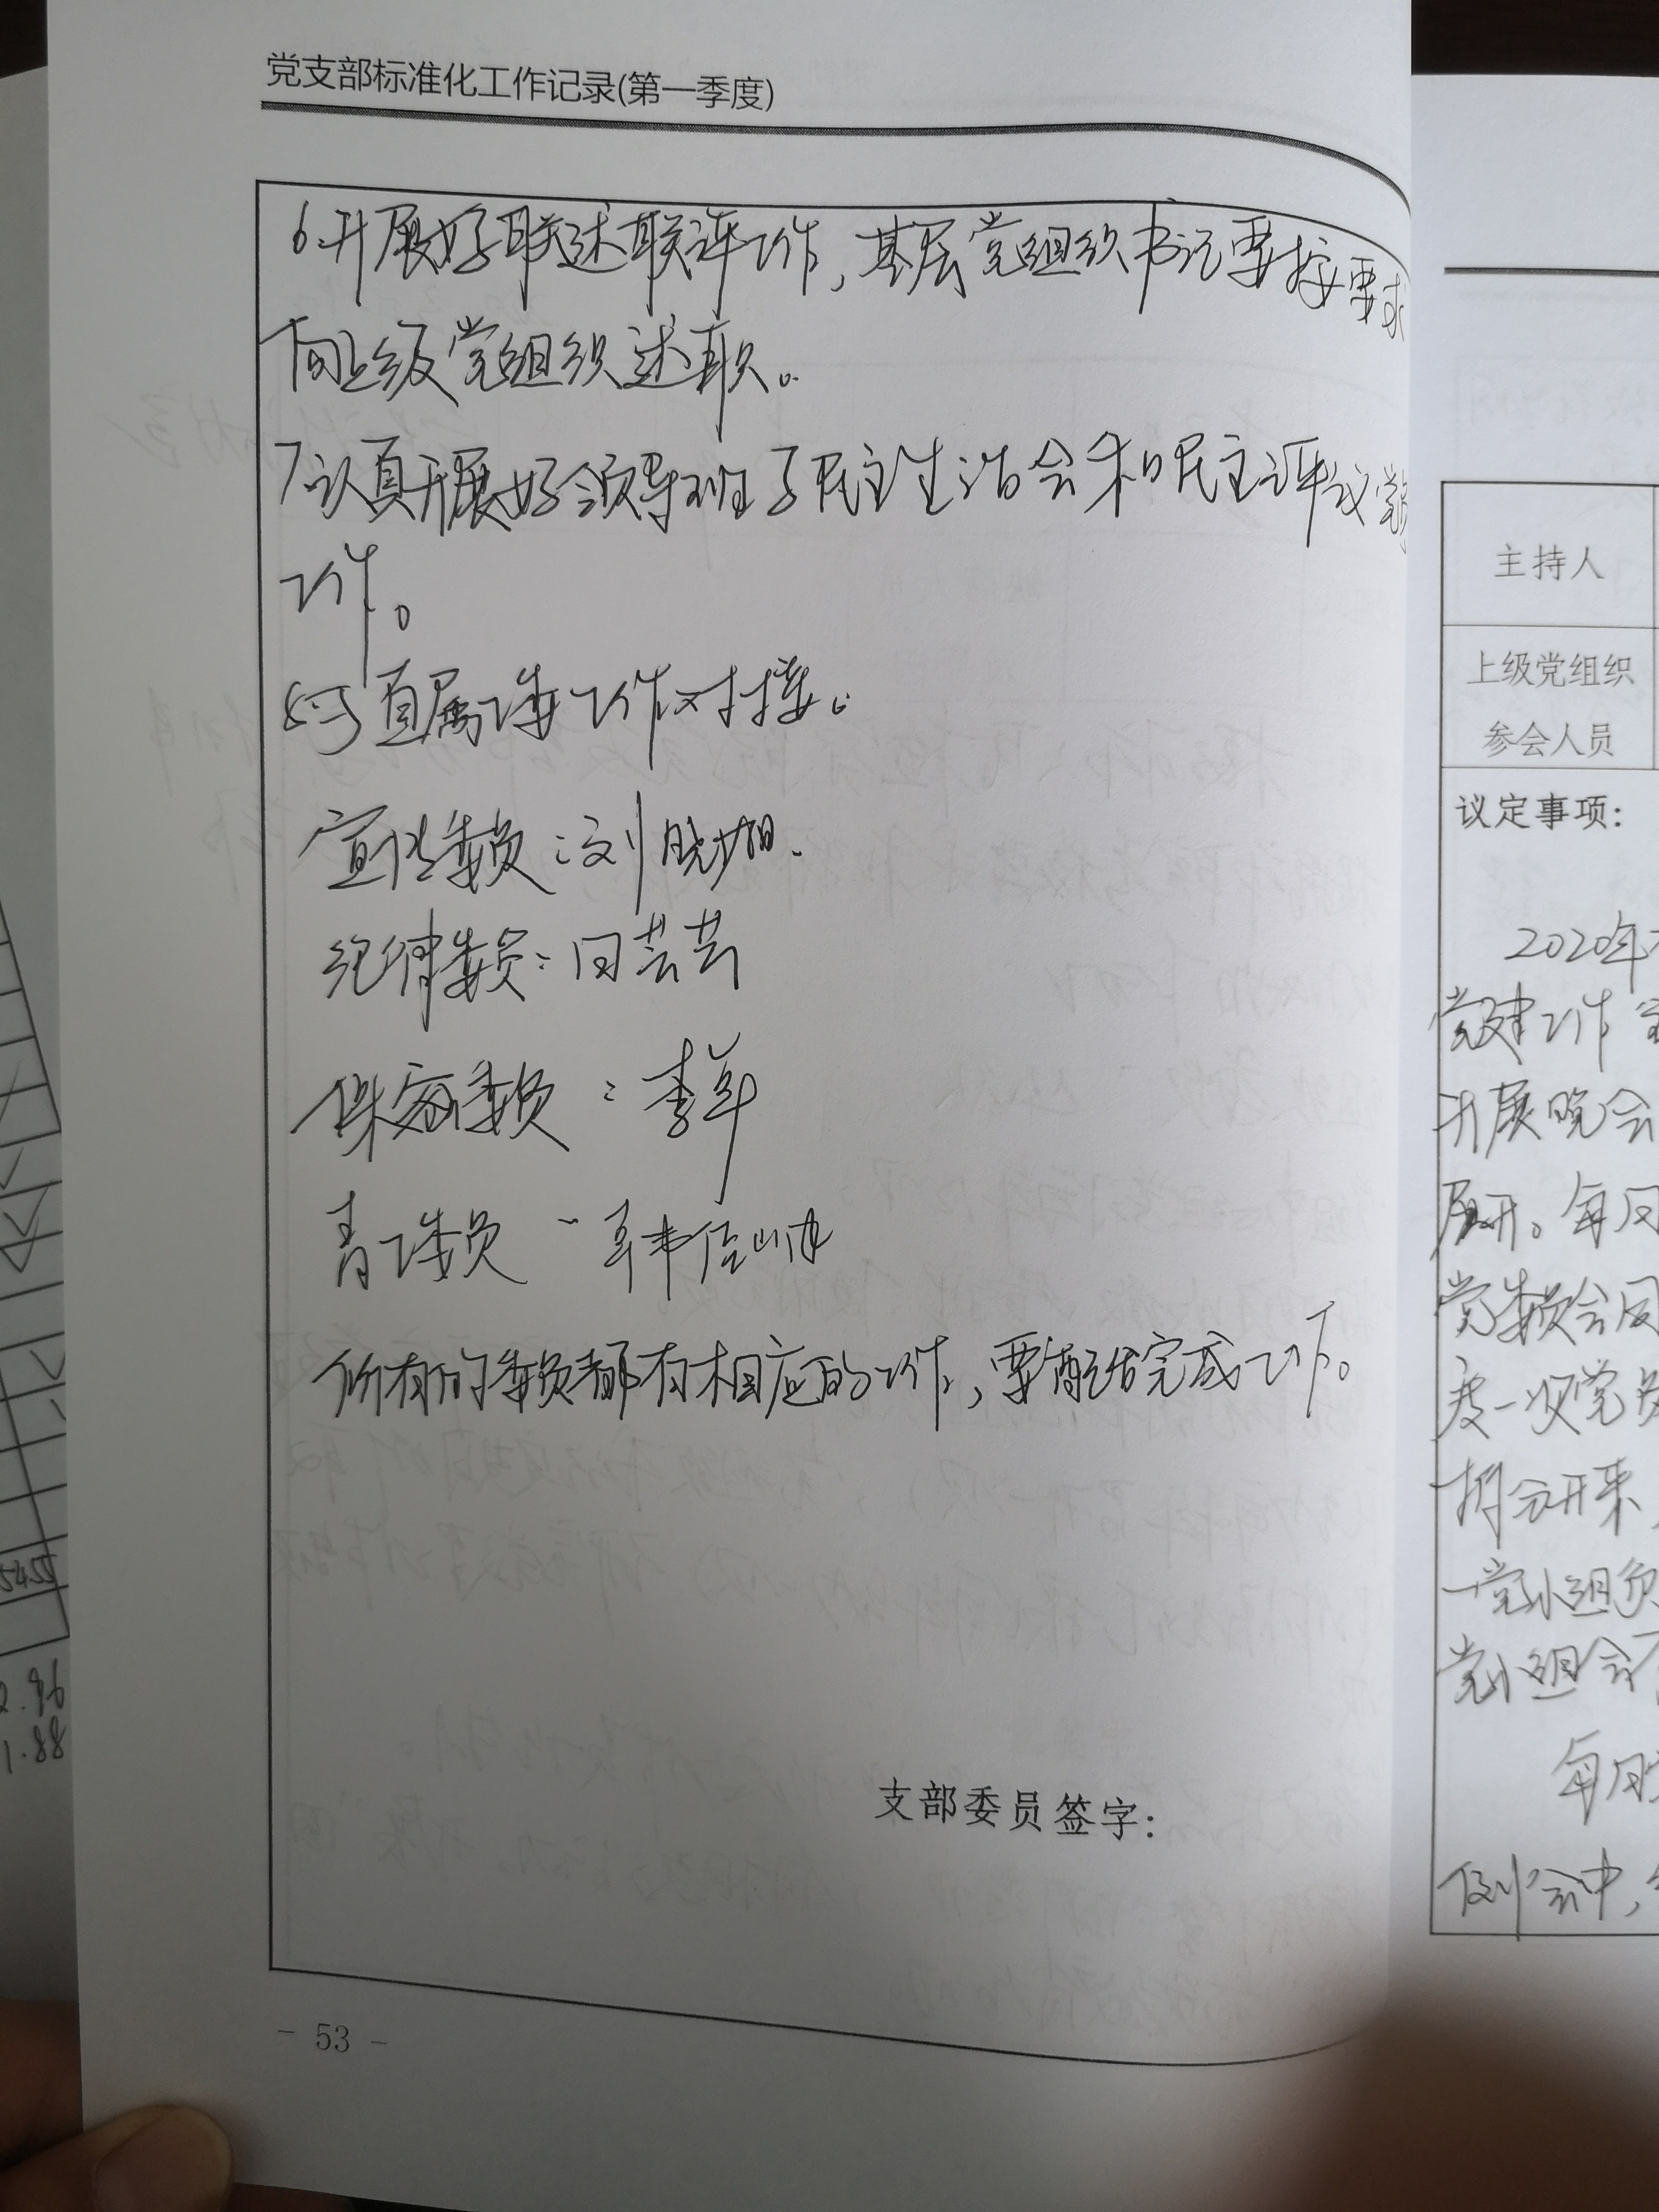 党支部标准化工作记录(第一季度)
6.开展好联述联评工作,基层党组织书记要按要求
向上级党组织述职。
7.认真开展好领导班子民主生活会和民主评议党
工作。
与直属工委工作对接。
宣传委员:刘晓
纪律委员:闫芸芸
保密委员:李军
青工委员
所有的委员都有相应的工作,要配合完成工作。
支部委员签字:
- 53 -
主持人
上级党组织
参会人员
议定事项:
2020年
党建工作
开展晚会
展开。每月
党委员会同
度一次党员
拆分开来,
一党小组负
党小组会
每月
例会中,
5455
2.96
1.88